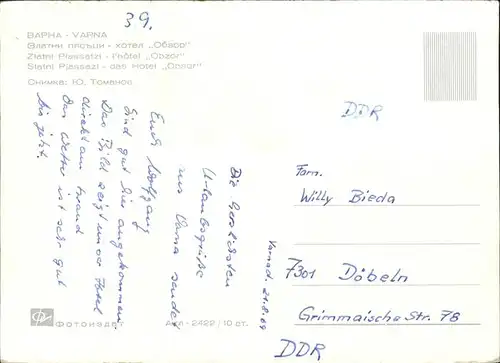 39.
ВАРНА - VARNA
Златни пясъци - хотел „Обзор"
Zlatni Piassatzi - l'hôtel „Obzor"
Slatni Pjassazi - das Hotel „Obsor"
Снимка: Ю. Томанов
Die herzlichsten
Urlaubsgrüße
aus Varna sendet
Euch Wolfgang
Sind gut hier angekommen
Das Bild zeigt unser Hotel
direkt am Strand
Das Wetter ist sehr gut
bis jetzt.
DDR
Fam.
Willy Bieda
7301 Döbeln
Grimmaische Str. 78
DDR
ФОТОИЗДАТ
2422 / 10 ст.